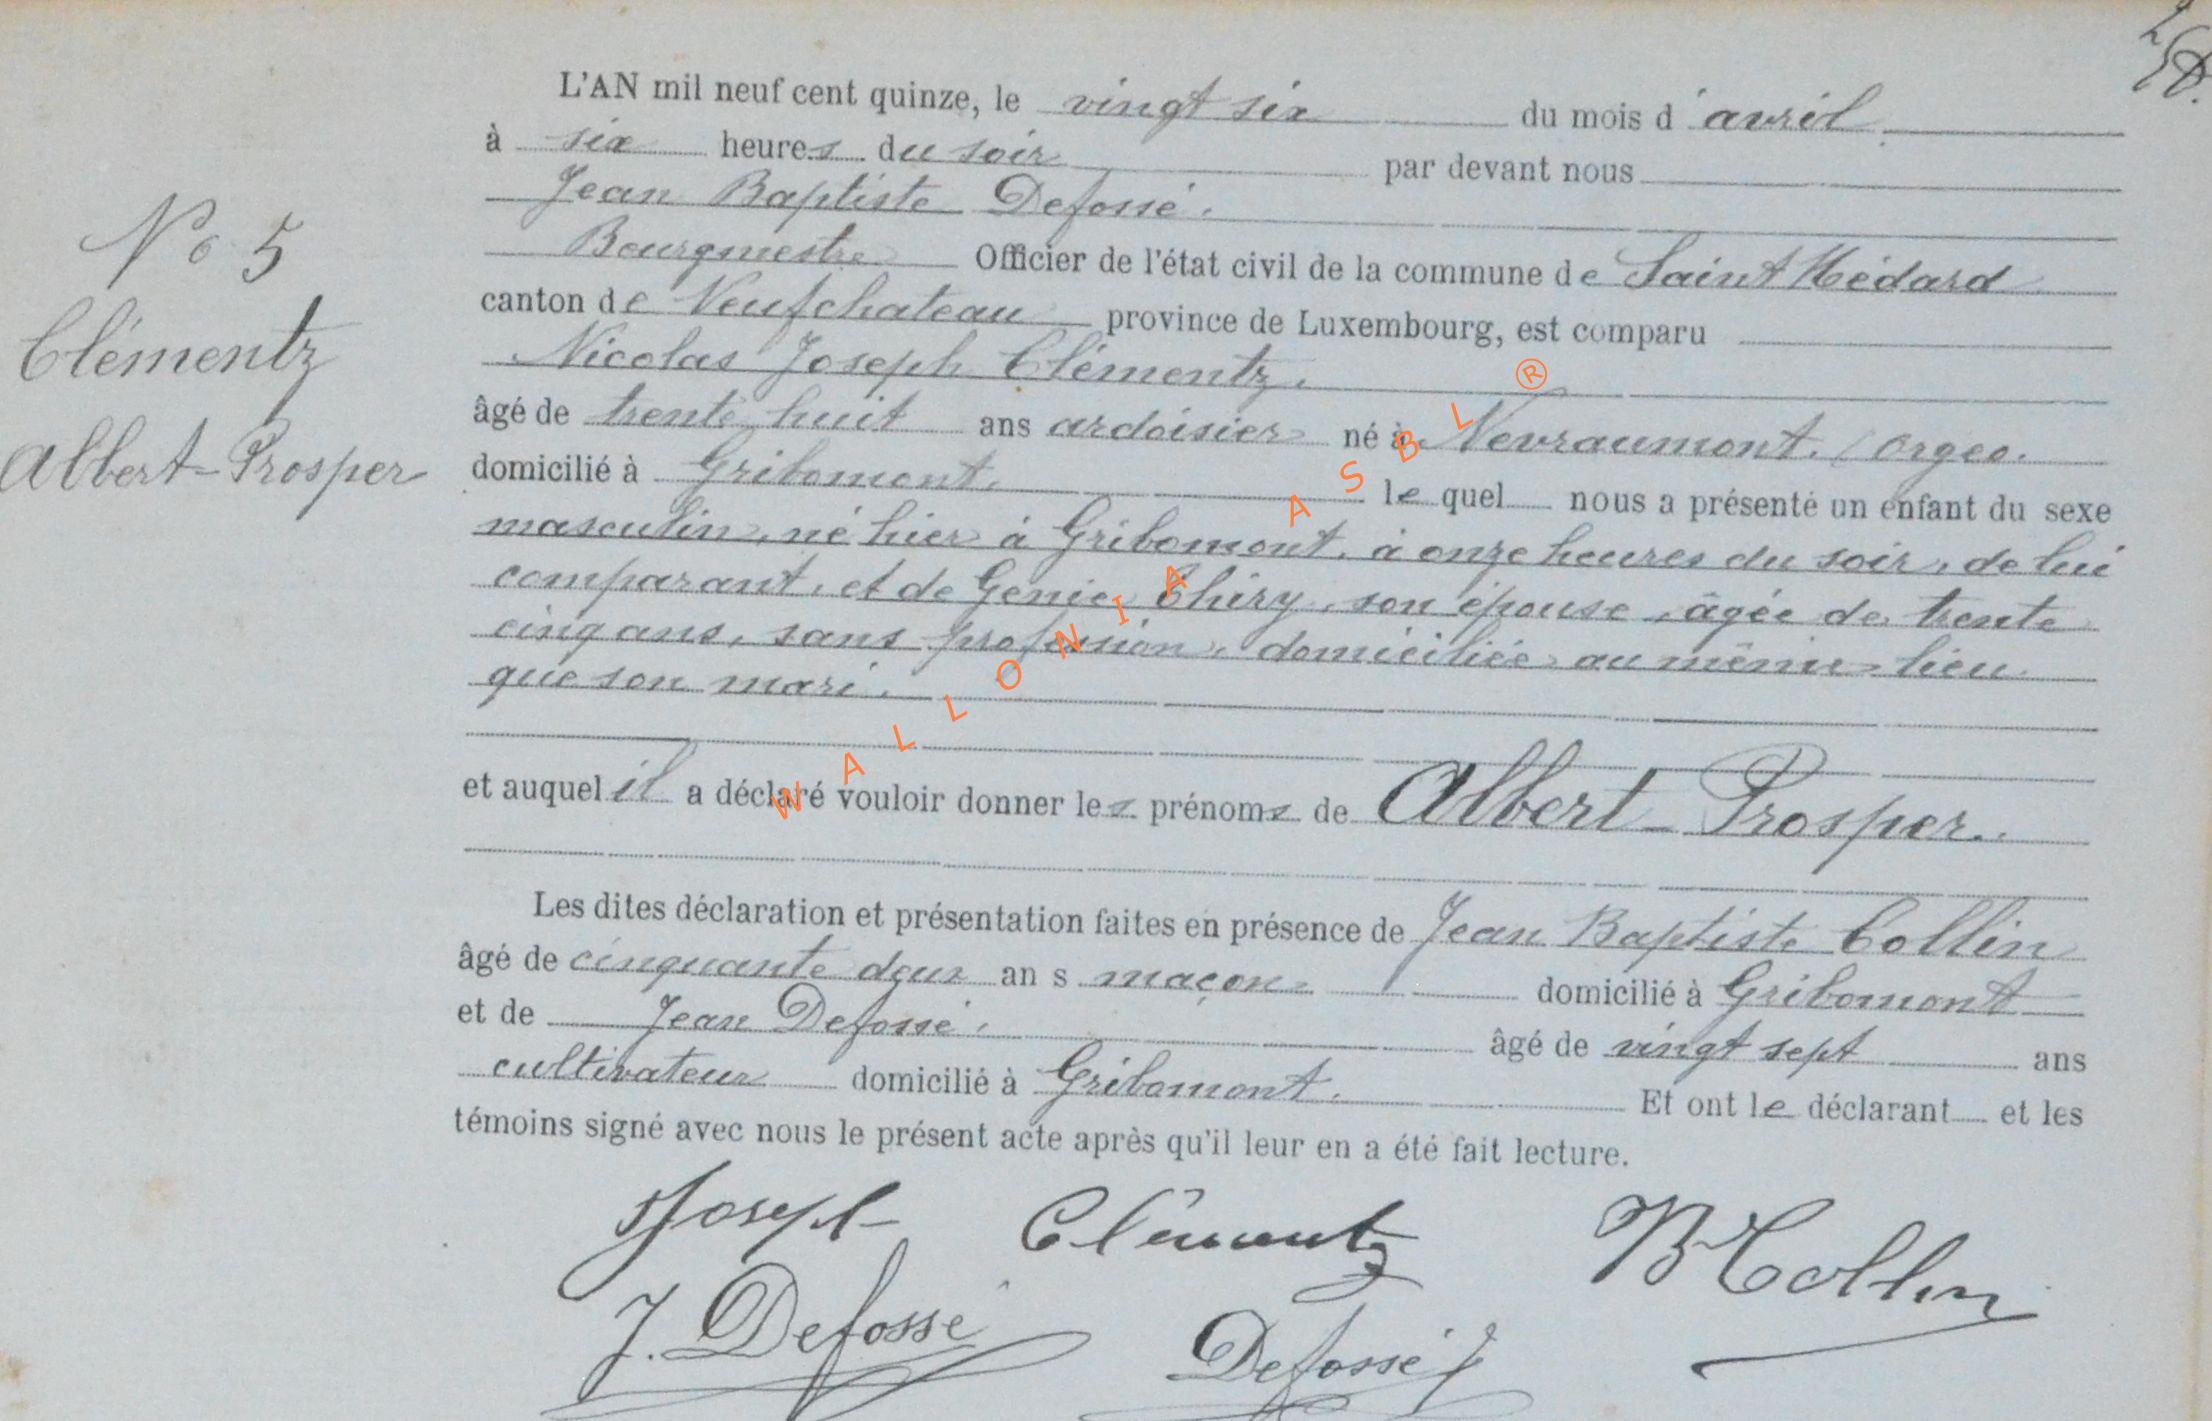 L'AN mil neuf cent quinze, le vingt six du mois d'avril
à six heures du soir par devant nous
Jean Baptiste Defossé.
Bourgmestre Officier de l'état civil de la commune de Saint Médard
canton de Neufchateau province de Luxembourg, est comparu
Nicolas Joseph Clémentz.
âgé de trente huit ans ardoisier né à Nevraumont. (Orgeo.
domicilié à Gribomont. lequel nous a présenté un enfant du sexe
masculin, né hier à Gribomont, à onze heures du soir, de lui
comparant, et de Génie Thiry, son épouse, âgée de trente
cinq ans, sans profession, domiciliée au même lieu
que son mari.
et auquel il a déclaré vouloir donner les prénoms de Albert-Prosper.
Les dites déclaration et présentation faites en présence de Jean Baptiste Collin
âgé de cinquante deux ans maçon domicilié à Gribomont
et de Jean Defossé. âgé de vingt sept ans
cultivateur domicilié à Gribomont. Et ont le déclarant et les
témoins signé avec nous le présent acte après qu'il leur en a été fait lecture.
Joseph Clémentz
JB Collin
J. Defossé
Defossé J
No 5
Clémentz
Albert-Prosper
WALLONIA ASBL ®